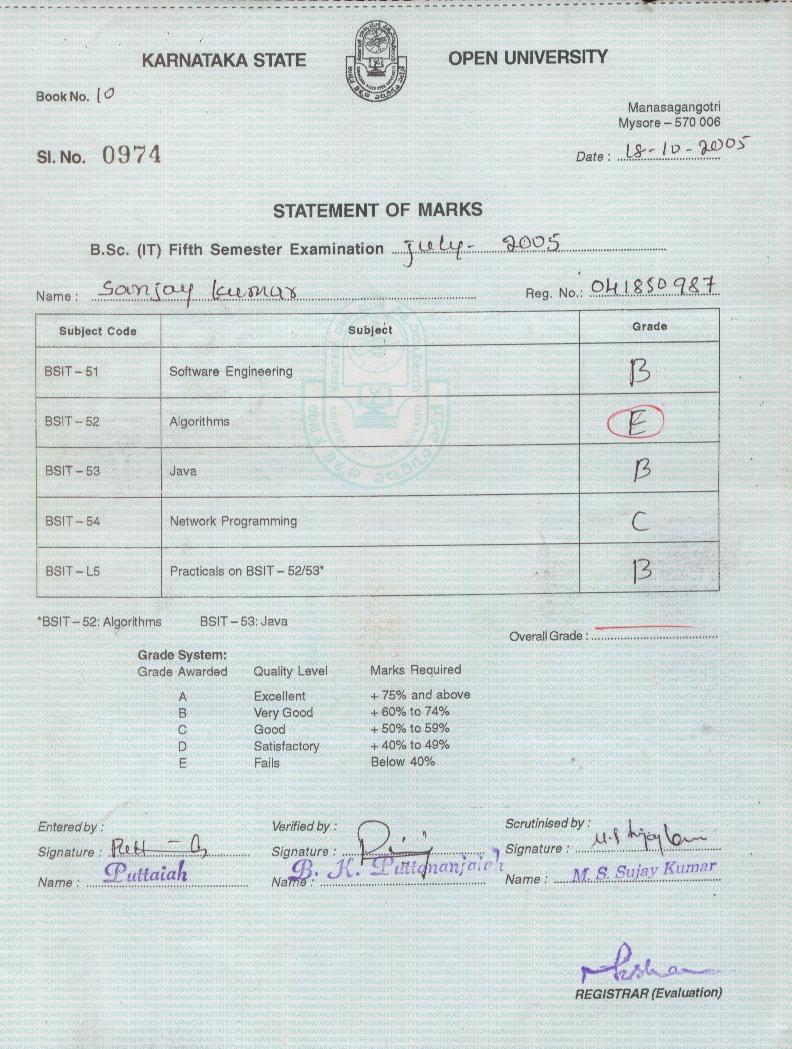 KARNATAKA STATE OPEN UNIVERSITY
Book No. 10
Manasagangotri
Mysore – 570 006
Sl. No. 0974
Date : 18-10-2005
STATEMENT OF MARKS
B.Sc. (IT) Fifth Semester Examination July- 2005
Name : Sanjay Kumar Reg. No.: 041850987
Subject Code Subject Grade
BSIT – 51 Software Engineering B
BSIT – 52 Algorithms E
BSIT – 53 Java B
BSIT – 54 Network Programming C
BSIT – L5 Practicals on BSIT – 52/53* B
*BSIT – 52: Algorithms BSIT – 53: Java
Overall Grade :
Grade System:
Grade Awarded Quality Level Marks Required
A Excellent + 75% and above
B Very Good + 60% to 74%
C Good + 50% to 59%
D Satisfactory + 40% to 49%
E Fails Below 40%
Entered by : Verified by : Scrutinised by :
Signature : Signature : Signature :
Name : Puttaiah Name : B. K. Puttananjaiah Name : M. S. Sujay Kumar
REGISTRAR (Evaluation)